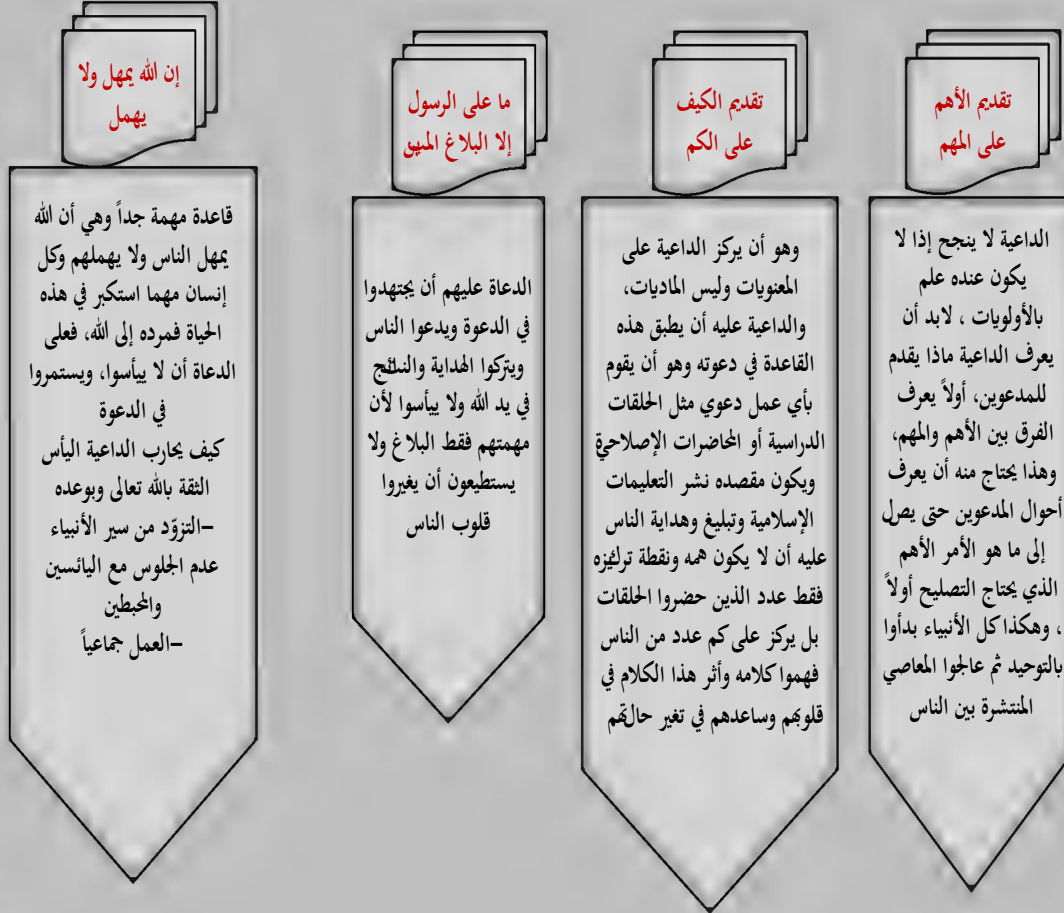 تقديم الأهم
على المهم
الداعية لا ينجح إذا لا
يكون عنده علم
بالأولويات ، لابد أن
يعرف الداعية ماذا يقدم
للمدعوين، أولاً يعرف
الفرق بين الأهم والمهم،
وهذا يحتاج منه أن يعرف
أحوال المدعوين حتى يصل
إلى ما هو الأمر الأهم
الذي يحتاج التصليح أولاً
، وهكذا كل الأنبياء بدأوا
بالتوحيد ثم عالجوا المعاصي
المنتشرة بين الناس
تقديم الكيف
على الكم
وهو أن يركز الداعية على
المعنويات وليس الماديات،
والداعية عليه أن يطبق هذه
القاعدة في دعوته وهو أن يقوم
بأي عمل دعوي مثل الحلقات
الدراسية أو المحاضرات الإصلاحية
ويكون مقصده نشر التعليمات
الإسلامية وتبليغ وهداية الناس
عليه أن لا يكون همه ونقطة تركيزه
فقط عدد الذين حضروا الحلقات
بل يركز على كم عدد من الناس
فهموا كلامه وأثر هذا الكلام في
قلوبهم وساعدهم في تغير حالتهم
ما على الرسول
إلا البلاغ المبين
الدعاة عليهم أن يجتهدوا
في الدعوة ويدعوا الناس
ويتركوا الهداية والنتائج
في يد الله ولا ييأسوا لأن
مهمتهم فقط البلاغ ولا
يستطيعون أن يغيروا
قلوب الناس
إن الله يمهل ولا
يهمل
قاعدة مهمة جداً وهي أن الله
يمهل الناس ولا يهملهم وكل
إنسان مهما استكبر في هذه
الحياة فمرده إلى الله، فعلى
الدعاة أن لا ييأسوا، ويستمروا
في الدعوة
كيف يحارب الداعية اليأس
الثقة بالله تعالى وبوعده
-التزوّد من سير الأنبياء
عدم الجلوس مع اليائسين
والمحبطين
-العمل جماعياً